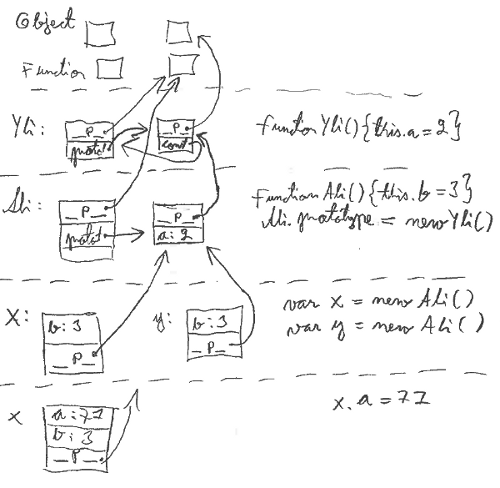 Object
Function
Yli:
_P_
protot
_P_
const
function Yli(){this.a=2}
Ali:
_P_
protot
_P_
a:2
function Ali(){this.b=3}
Ali.prototype = new Yli()
X:
b:3
_P_
y:
b:3
_P_
var x = new Ali()
var y = new Ali()
x
a:71
b:3
_P_
x.a=71